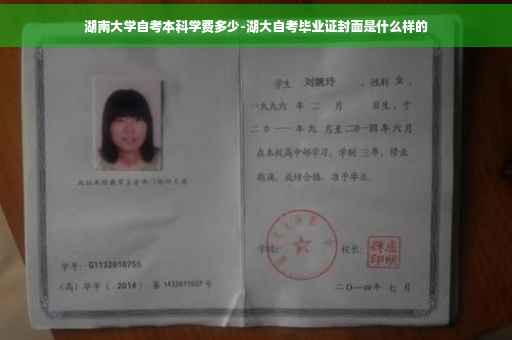 湖南大学自考本科学费多少-湖大自考毕业证封面是什么样的
学号: G1132010755
学生 刘婉玲 ,性别 女 ,
一九九六 年 二 月 日生,于
二〇一一 年 九 月至 二〇一四 年 六 月
在本校高中部学习,学制 三 年,修业
期满,成绩合格,准予毕业。
学校:
校长:
二〇一四年 七 月